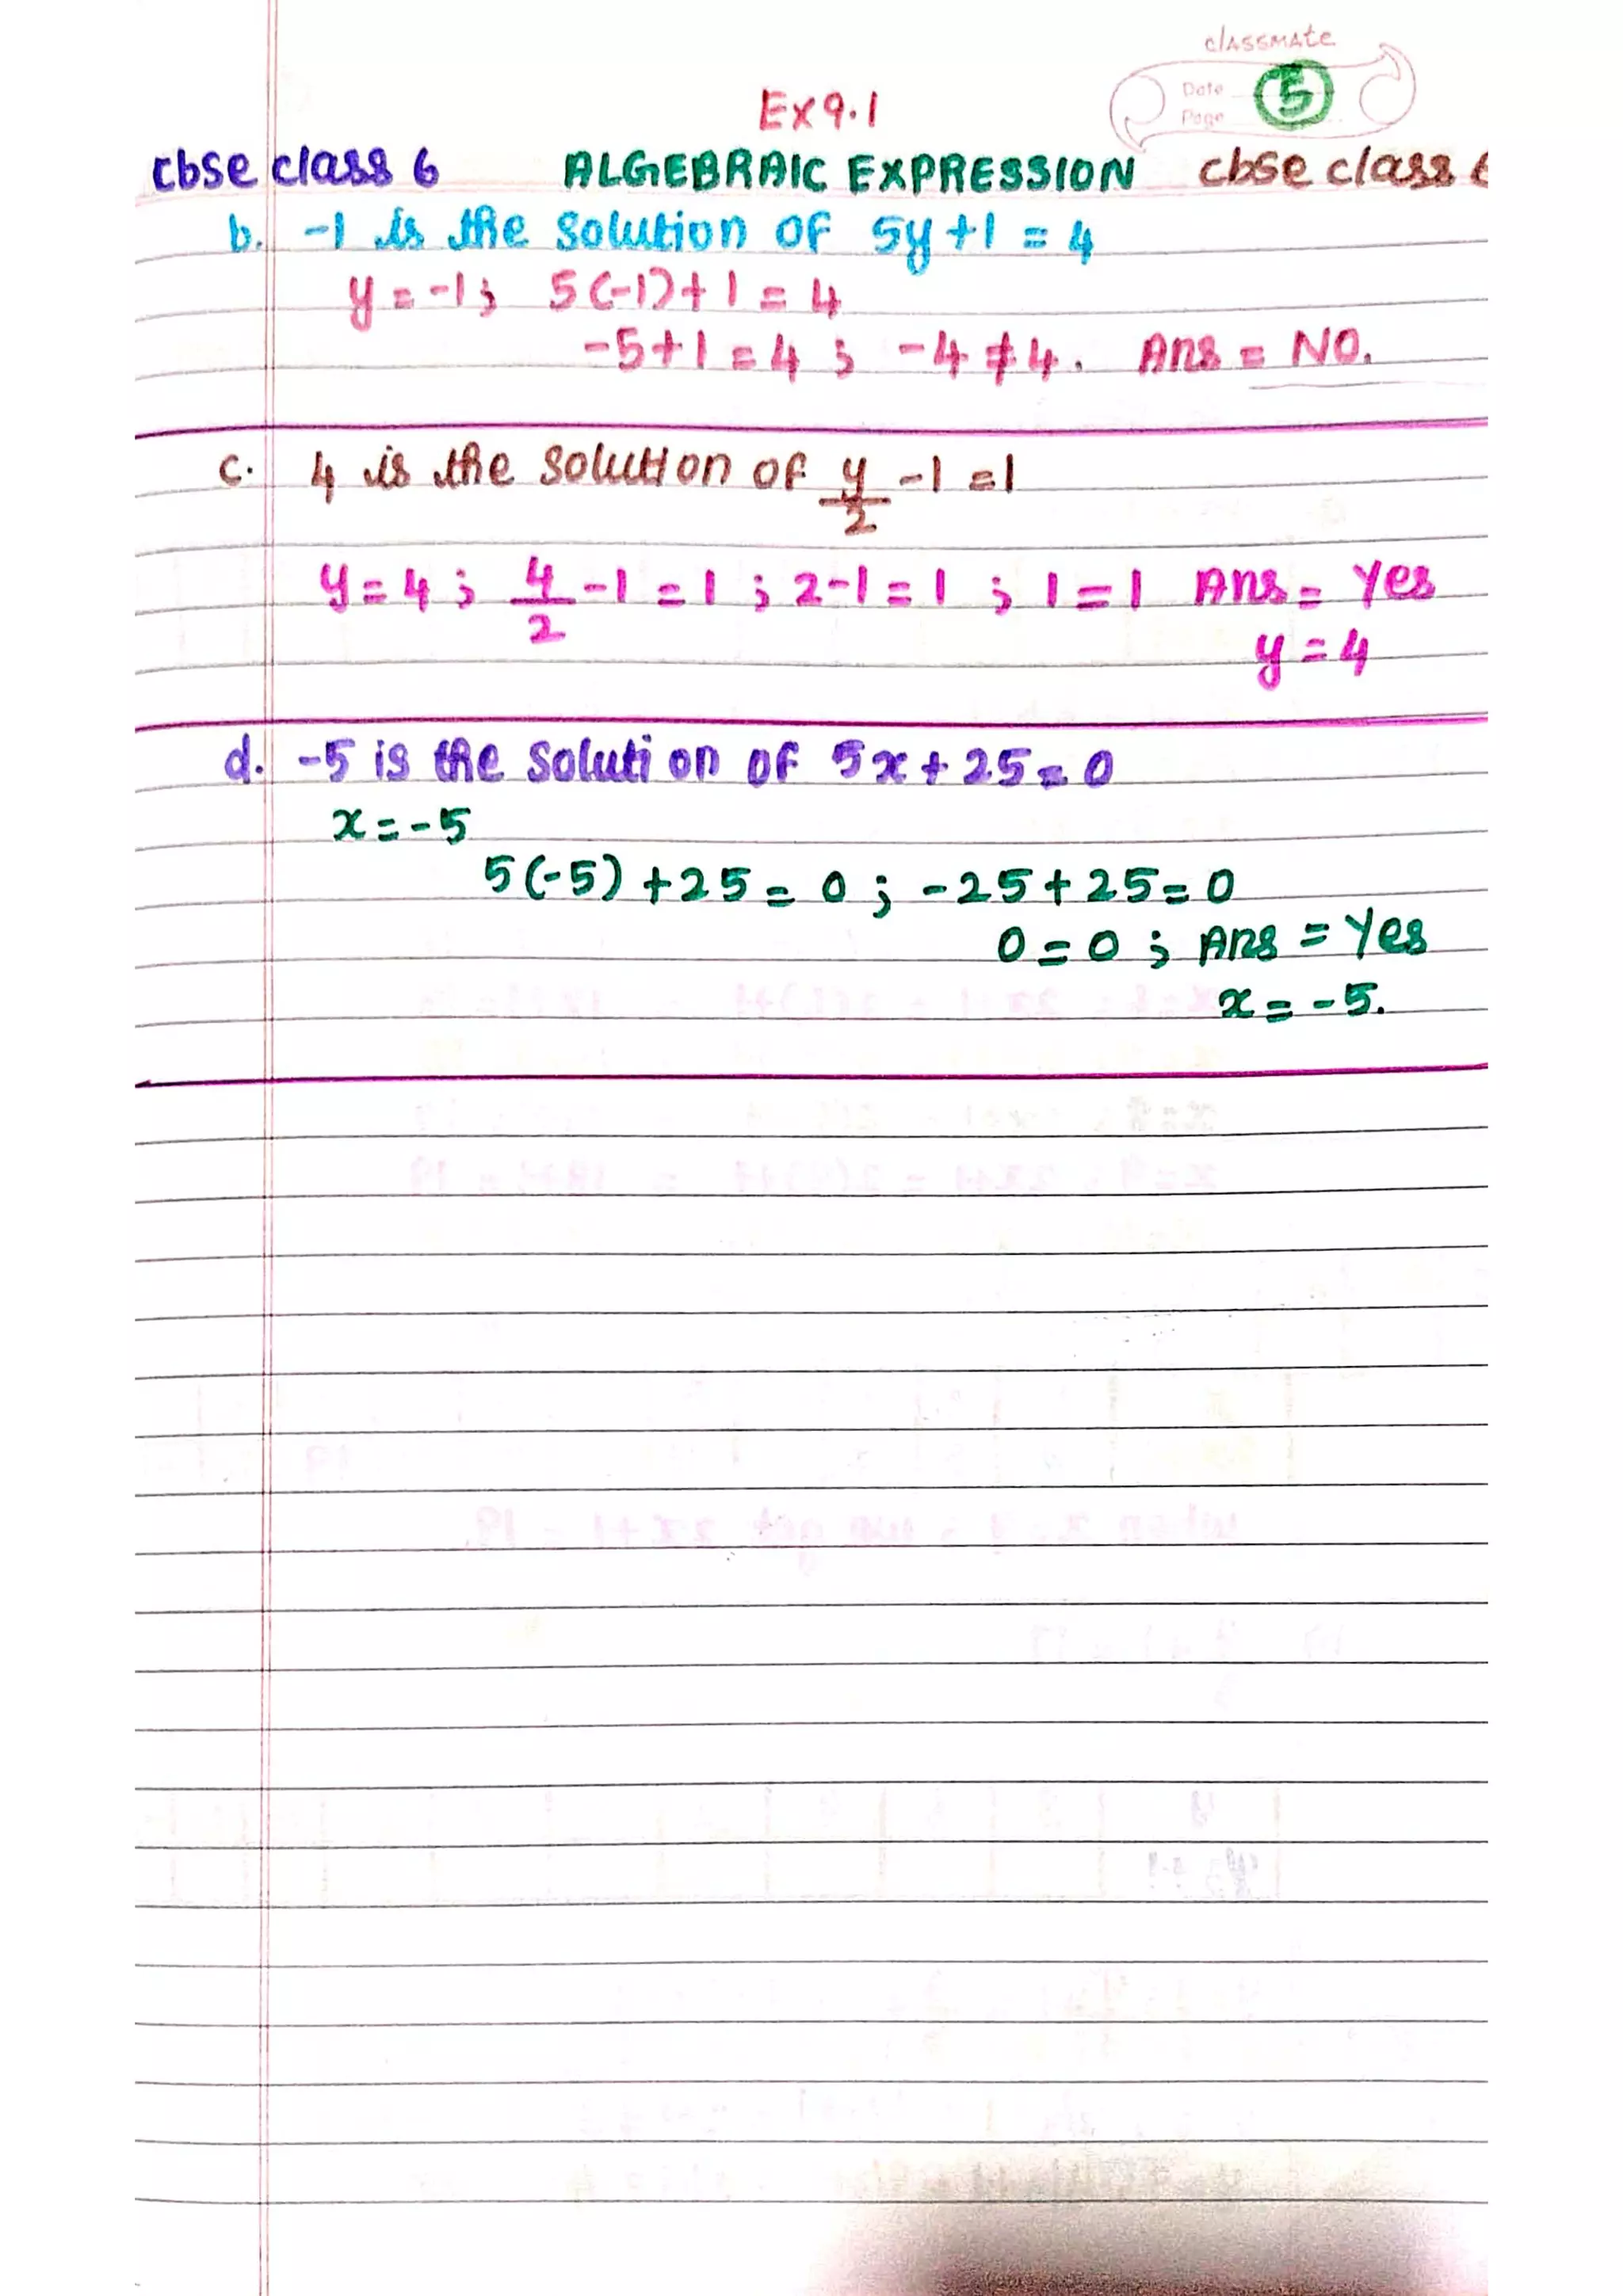 classmate
Date
Page
5
Ex 9.1
cbse class 6 ALGEBRAIC EXPRESSION cbse class 6
b. -1 is the solution of 5y+1 = 4
y = -1; 5(-1)+1 = 4
-5+1 = 4 ; -4 ≠ 4. Ans = NO.
c. 4 is the solution of y/2 -1 = 1
y = 4 ; 4/2 -1 = 1 ; 2-1 = 1 ; 1 = 1 Ans = Yes
y = 4
d. -5 is the solution of 5x + 25 = 0
x = -5
5(-5) +25 = 0 ; -25 + 25 = 0
0 = 0 ; Ans = Yes
x = -5.